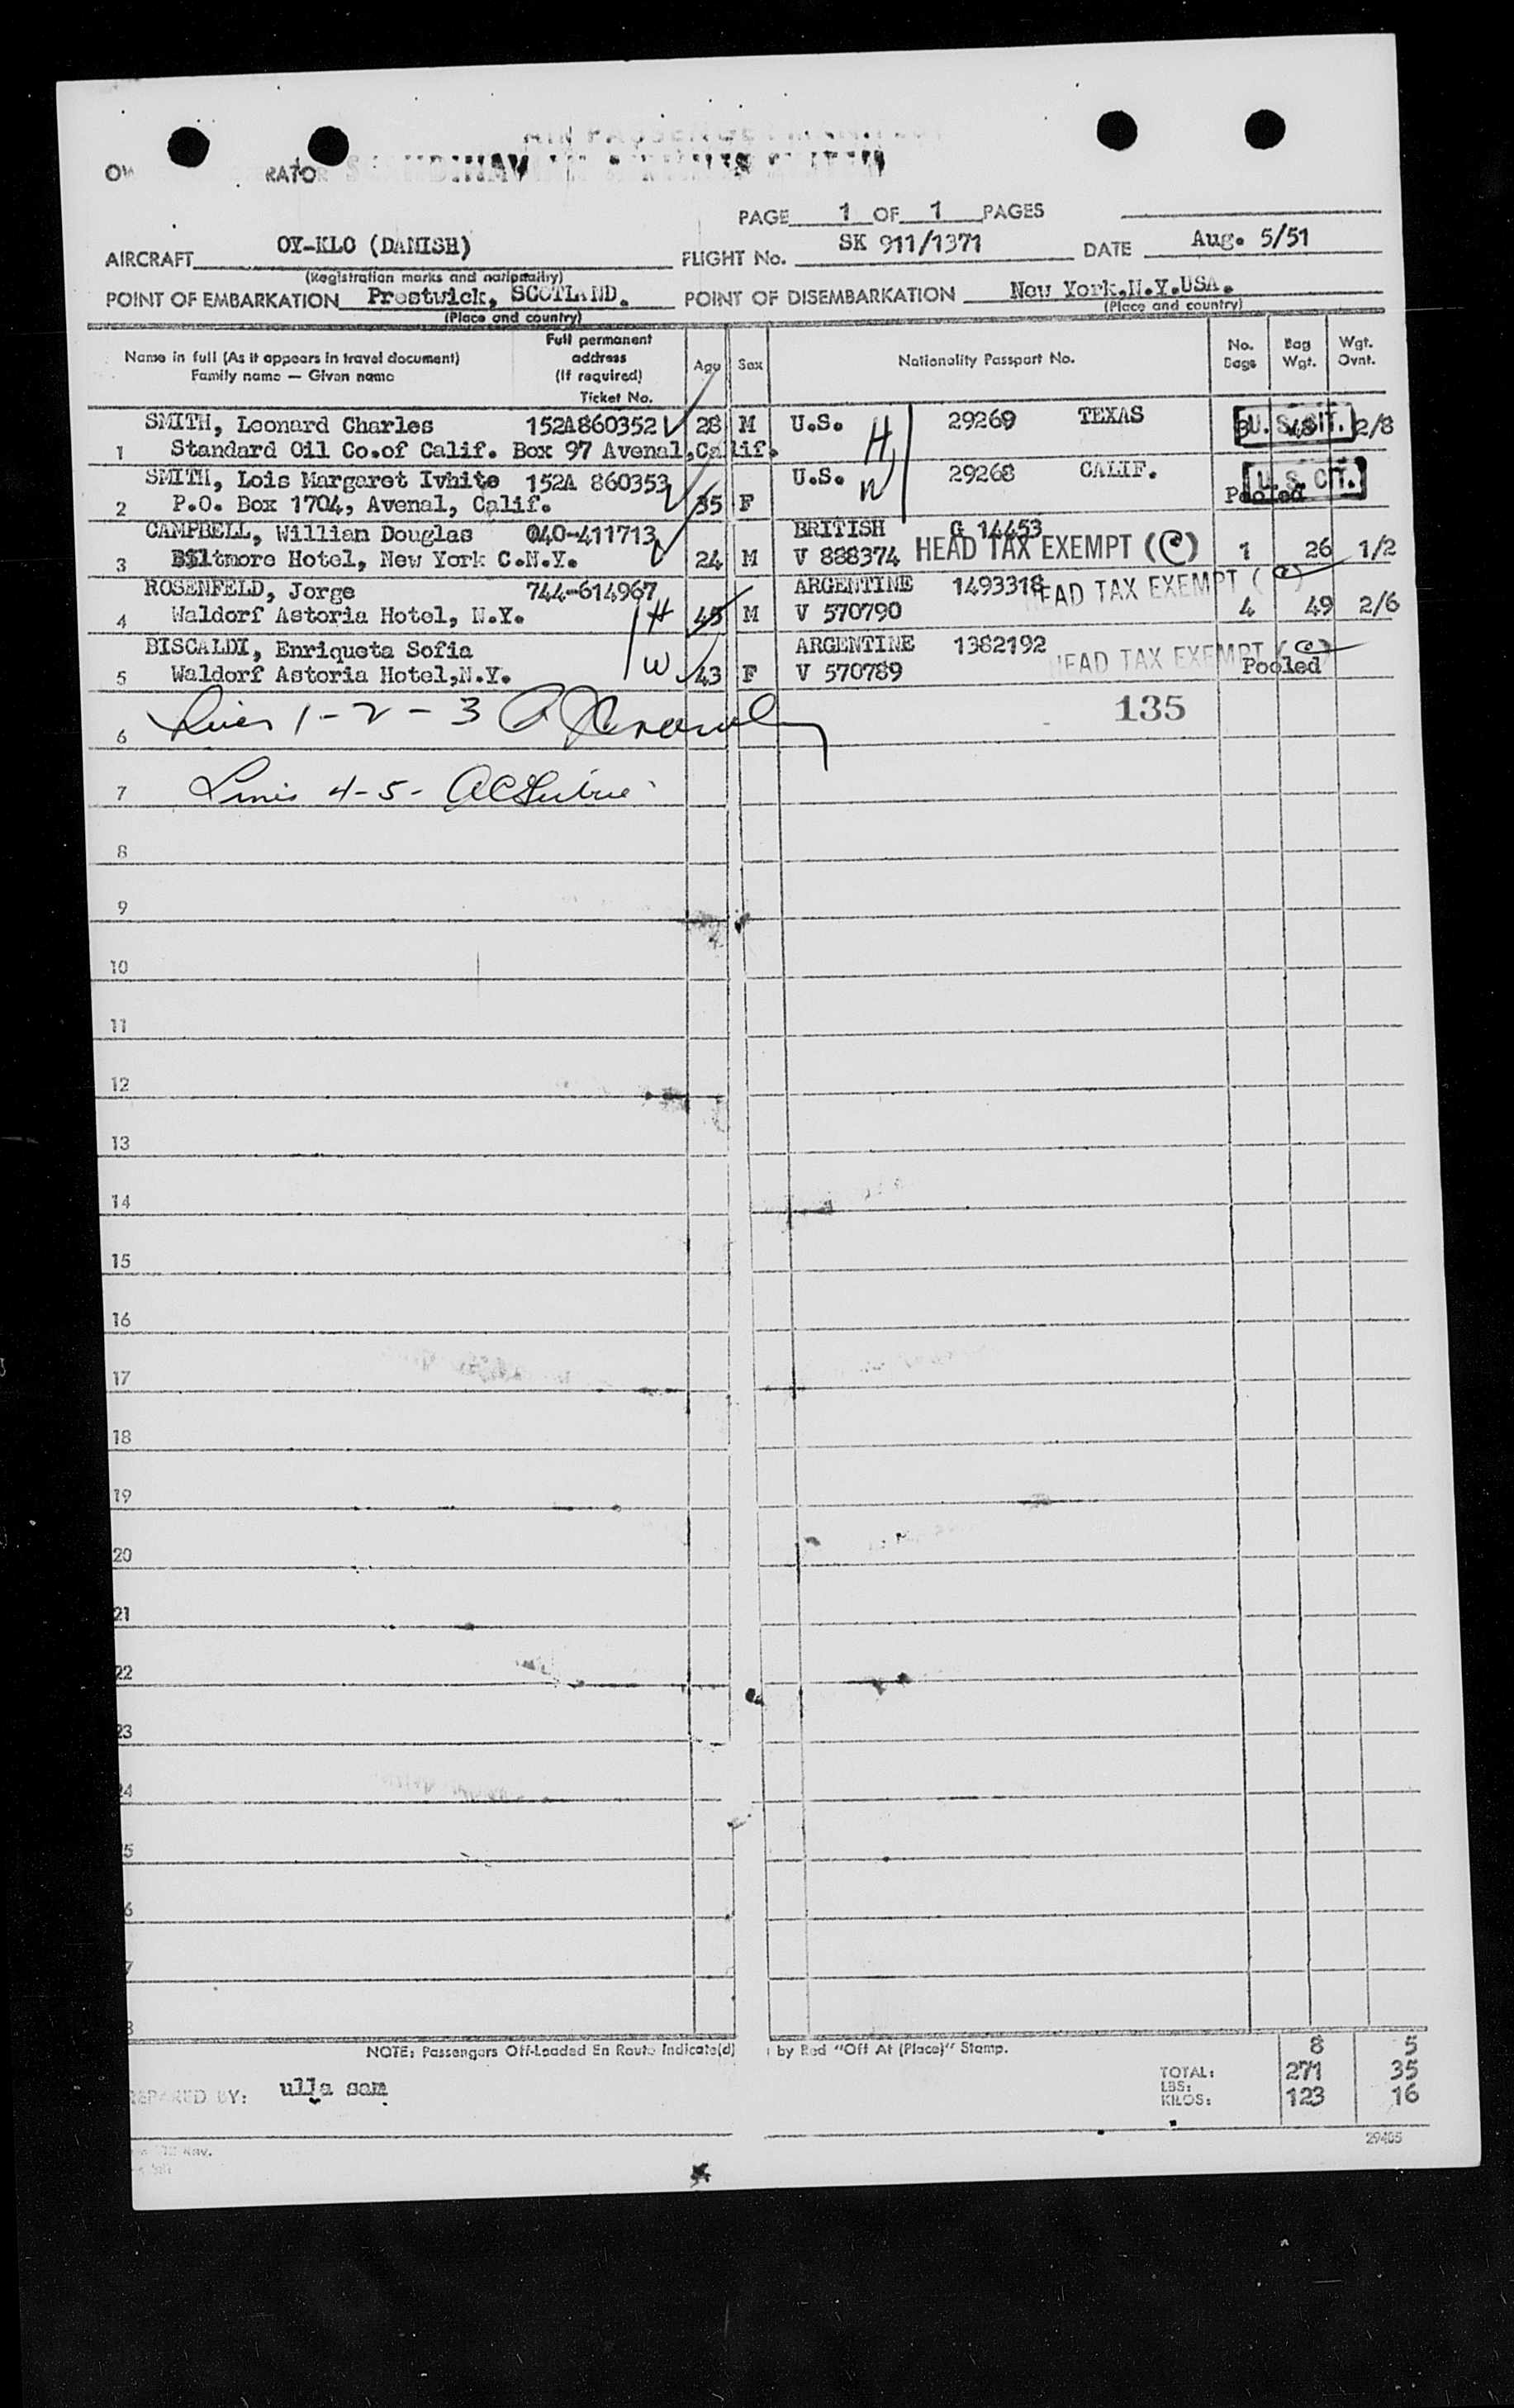 AIR PASSENGER MANIFEST
OW RATOR SCANDINAVIAN AIRLINES SYSTEM
PAGE 1 OF 1 PAGES
AIRCRAFT OY-KLO (DANISH) FLIGHT No. SK 911/1371 DATE Aug. 5/51
(Registration marks and nationality)
POINT OF EMBARKATION Prestwick, SCOTLAND. POINT OF DISEMBARKATION New York,N.Y.USA.
(Place and country) (Place and country)
Name in full (As it appears in travel document) Family name — Given name Full permanent address (If required) Ticket No. Age Sex Nationality Passport No. No. Bags Bag Wgt. Wgt. Ovnt.
SMITH, Leonard Charles 152A860352 28 M U.S. H 29269 TEXAS 3 48 U.S. CIT. 2/8
1 Standard Oil Co.of Calif. Box 97 Avenal,Calif.
SMITH, Lois Margaret Ivhite 152A 860353 U.S. W 29268 CALIF. U.S. CIT.
2 P.O. Box 1704, Avenal, Calif. 35 F Pooled
CAMPBELL, Willian Douglas 040-411713 BRITISH G 14453
3 Biltmore Hotel, New York C.N.Y. 24 M V 888374 HEAD TAX EXEMPT (C) 1 26 1/2
ROSENFELD, Jorge 744-614967 ARGENTINE 1493318 HEAD TAX EXEMPT (C)
4 Waldorf Astoria Hotel, N.Y. H 45 M V 570790 4 49 2/6
BISCALDI, Enriqueta Sofia ARGENTINE 1382192 HEAD TAX EXEMPT (C)
5 Waldorf Astoria Hotel,N.Y. W 43 F V 570789 Pooled
6 Lines 1-2-3 135
7 Lines 4-5-
8
9
10
11
12
13
14
15
16
17
18
19
20
21
22
23
4
5
6
7
8
NOTE: Passengers Off-Loaded En Route Indicate(d) by Red "Off At (Place)" Stamp.
8 5
TOTAL: 271 35
LBS:
KILOS: 123 16
REPARED BY: ulla som
29405